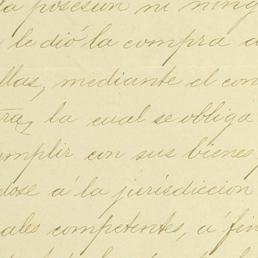 la posesión ni ning
le dió la compra a
llas, mediante el con
tra, la cual se obliga
umplir con sus bienes
dose á la jurisdiccion
ales competentes, á fin